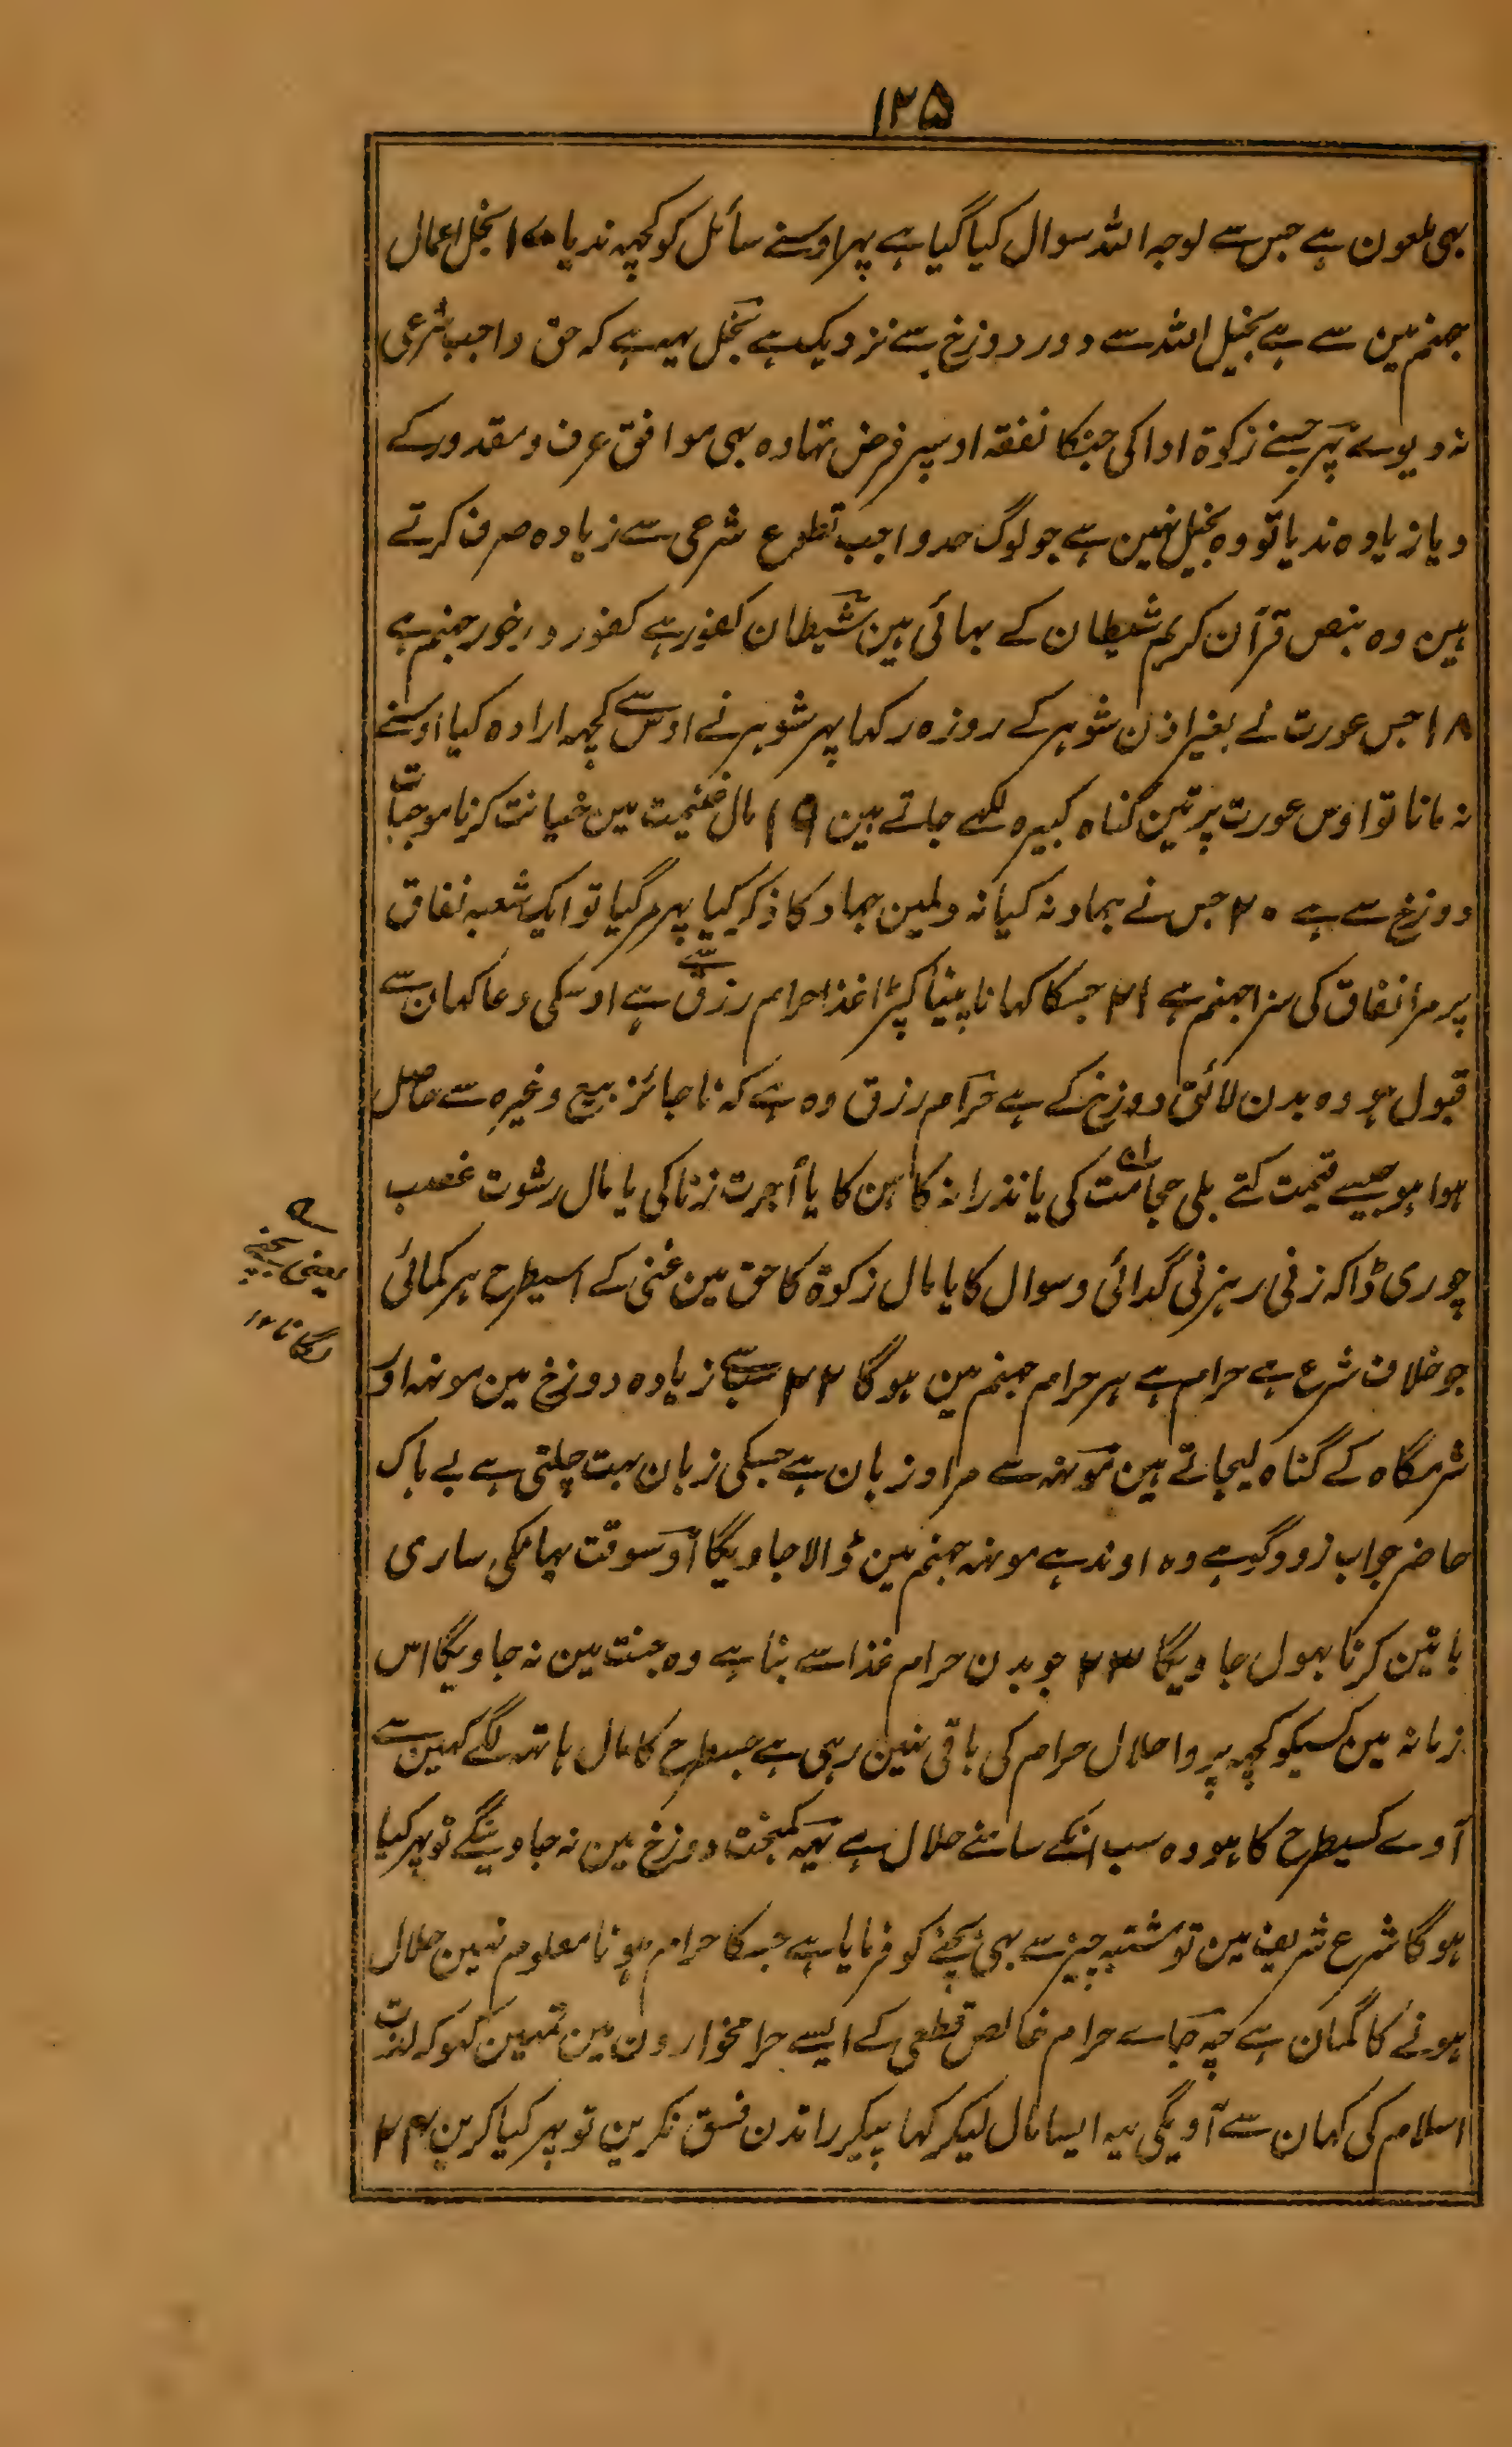 ۱۲۵
بہی ملعون ہے جس سے لوجہ اللہ سوال کیا گیا ہے پہر اوسنے سائل کو کچہہ ندیا ۱۷ بخل اعمال
جہنم مین سے ہے بخیل اللہ سے دور دوزخ سے نزدیک ہے بخل یہہ ہے کہ حق واجب شرعی
نہ دیوے پہر جسنے زکوۃ ادا کی جنکا نفقہ اوسپر فرض تہا وہ بہی موافق عرف و مقدور کے
دیا زیادہ ندیا تو وہ بخیل نہین ہے جو لوگ حد واجب تطوع شرعی سے زیادہ صرف کرتے
ہین وہ بنص قرآن کریم شیطان کے بہائی ہین شیطان کفور ہے کفور درخور جہنم ہے
۱۸ جس عورت نے بغیر اذن شوہر کے روزہ رکہا پہر شوہر نے اوس سے کچہہ ارادہ کیا اوسنے
نہ مانا تو اوس عورت پر تین گناہ کبیرہ لکہے جاتے ہین ۱۹ مال غنیمت مین خیانت کرنا موجبات
دوزخ سے ہے ۲۰ جس نے جہاد نہ کیا نہ دلمین جہاد کا ذکر کیا پہر مر گیا تو ایک شعبہ نفاق
پر مرا نفاق کی سزا جہنم ہے ۲۱ جسکا کہانا پینا کپڑا غذا حرام رزق سے ہے اوسکی دعا کہان سے
قبول ہو وہ بدن لائق دوزخ کے ہے حرام رزق وہ ہے کہ ناجائز بیع وغیرہ سے حاصل
ہوا ہو جیسے قیمت کتے بلی حجامت کی یا نذرانہ کاہن کا یا اجرت زنا کی یا مال رشوت غصب
چوری ڈاکہ زنی رہزنی گدائی و سوال کا یا مال زکوۃ کا حق مین غنی کے اسیطرح ہر کمائی
یعنی پچھنے
لگانا ۱۲
جو خلاف شرع ہے حرام ہے ہر حرام جہنم مین ہوگا ۲۲ سب سے زیادہ دوزخ مین مونہہ اور
شرمگاہ کے گناہ لیجاتے ہین مونہہ سے مراد زبان ہے جسکی زبان بہت چلتی ہے بے باک
حاضر جواب زود گو ہے وہ اوندہے مونہہ جہنم مین ڈالا جاویگا اوسوقت یہانکی ساری
باتین کرنا بہول جاویگا ۲۳ جو بدن حرام غذا سے بنا ہے وہ جنت مین نہ جاویگا اس
زمانہ مین کسیکو کچہہ پروا حلال حرام کی باقی نہین رہی ہے جسطرح کا مال ہاتہہ لگے کہین سے
آوے کسیطرح کا ہو وہ سب انکے سامنے حلال ہے یہہ کمبخت دوزخ مین نہ جاوینگے تو پہر کیا
ہوگا شرع شریف مین تو مشتبہ چیز سے بہی بچنے کو فرمایا ہے جسکا حرام ہونا معلوم نہین حلال
ہونے کا گمان ہے چہ جاے حرام خالص قطعی کے ایسے حرامخوارون مین تمہین کہو کہ لذت
اسلام کی کہان سے آویگی یہہ ایسا مال لیکر کہا پیکر راتدن فسق نکرین تو پہر کیا کرین ۲۴